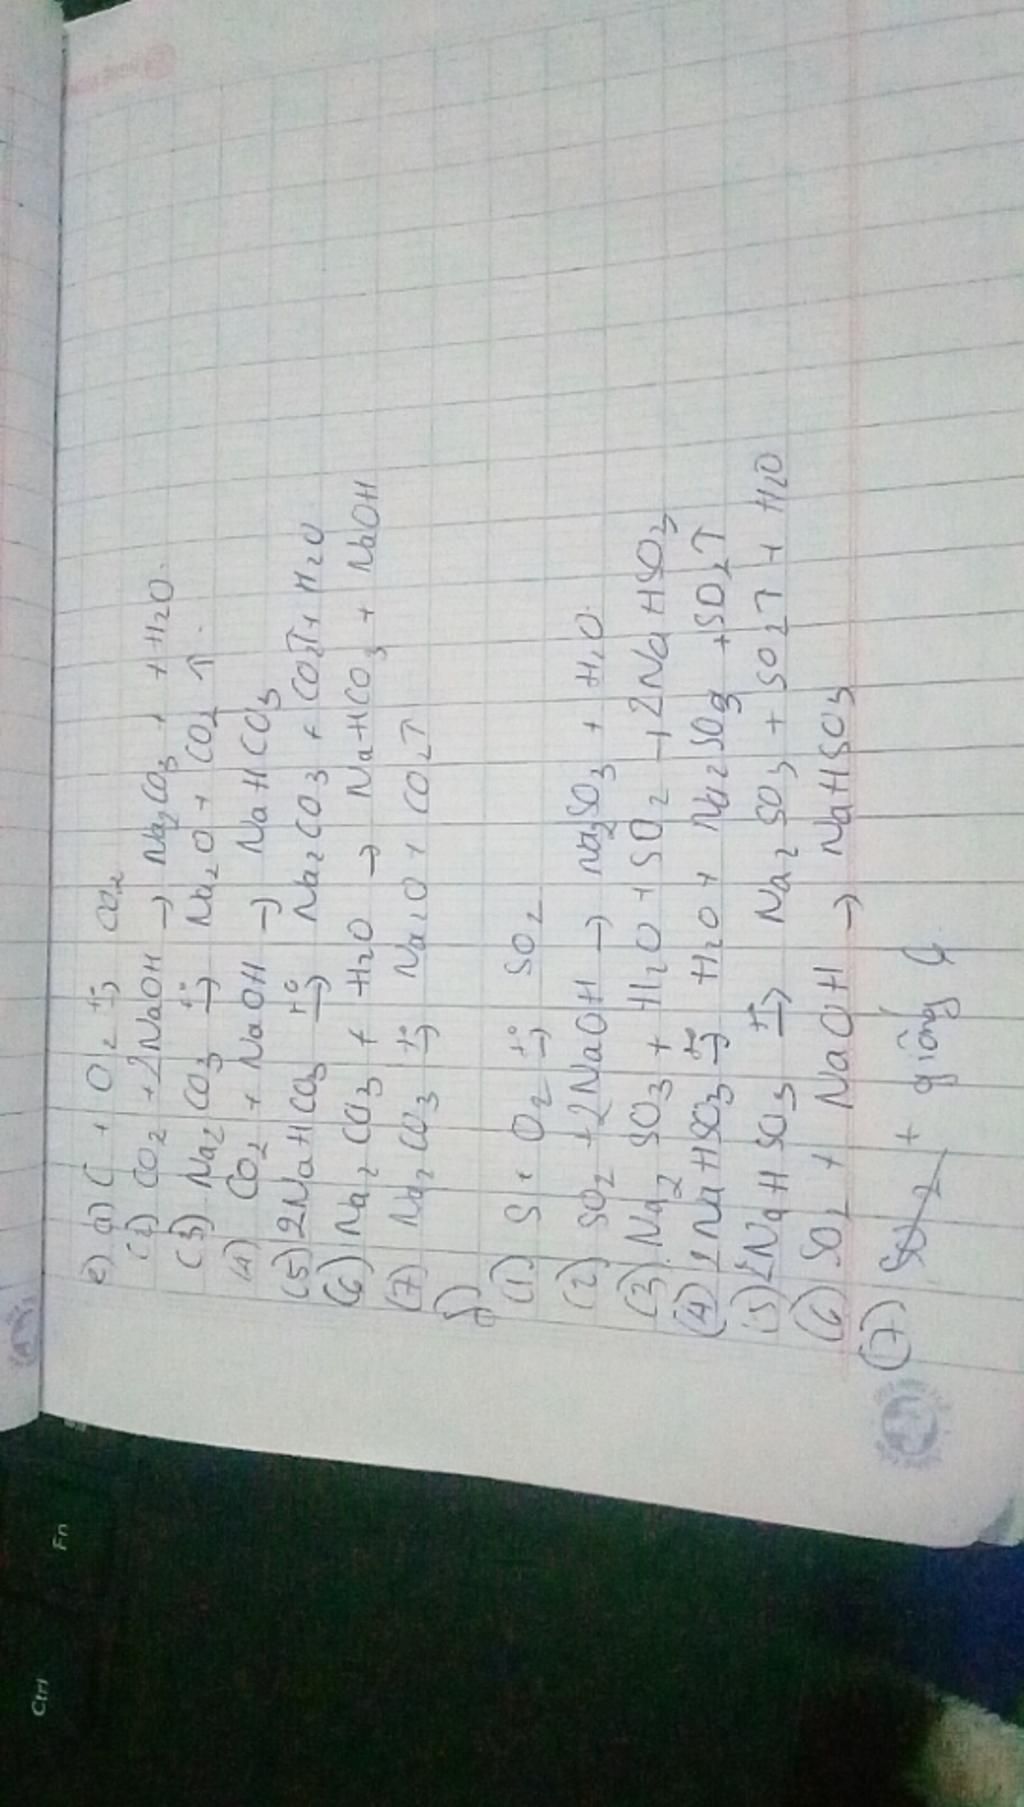 e) (1) C + O2 t°→ CO2
(2) CO2 + 2NaOH → Na2CO3 + H2O.
(3) Na2CO3 t°→ Na2O + CO2 ↑.
(4) CO2 + NaOH → NaHCO3
(5) 2NaHCO3 t°→ Na2CO3 + CO2↑ + H2O
(6) Na2CO3 + H2O → NaHCO3 + NaOH
(7) Na2CO3 t°→ Na2O + CO2↑
f)
(1) S + O2 t°→ SO2
(2) SO2 + 2NaOH → Na2SO3 + H2O.
(3) Na2SO3 + H2O + SO2 → 2NaHSO3
(4) 2NaHSO3 t°→ H2O + Na2SO3 + SO2↑
(5) 2NaHSO3 t°→ Na2SO3 + SO2↑ + H2O
(6) SO2 + NaOH → NaHSO3
(7) SO2 + giống 4
Ctrl
Fn